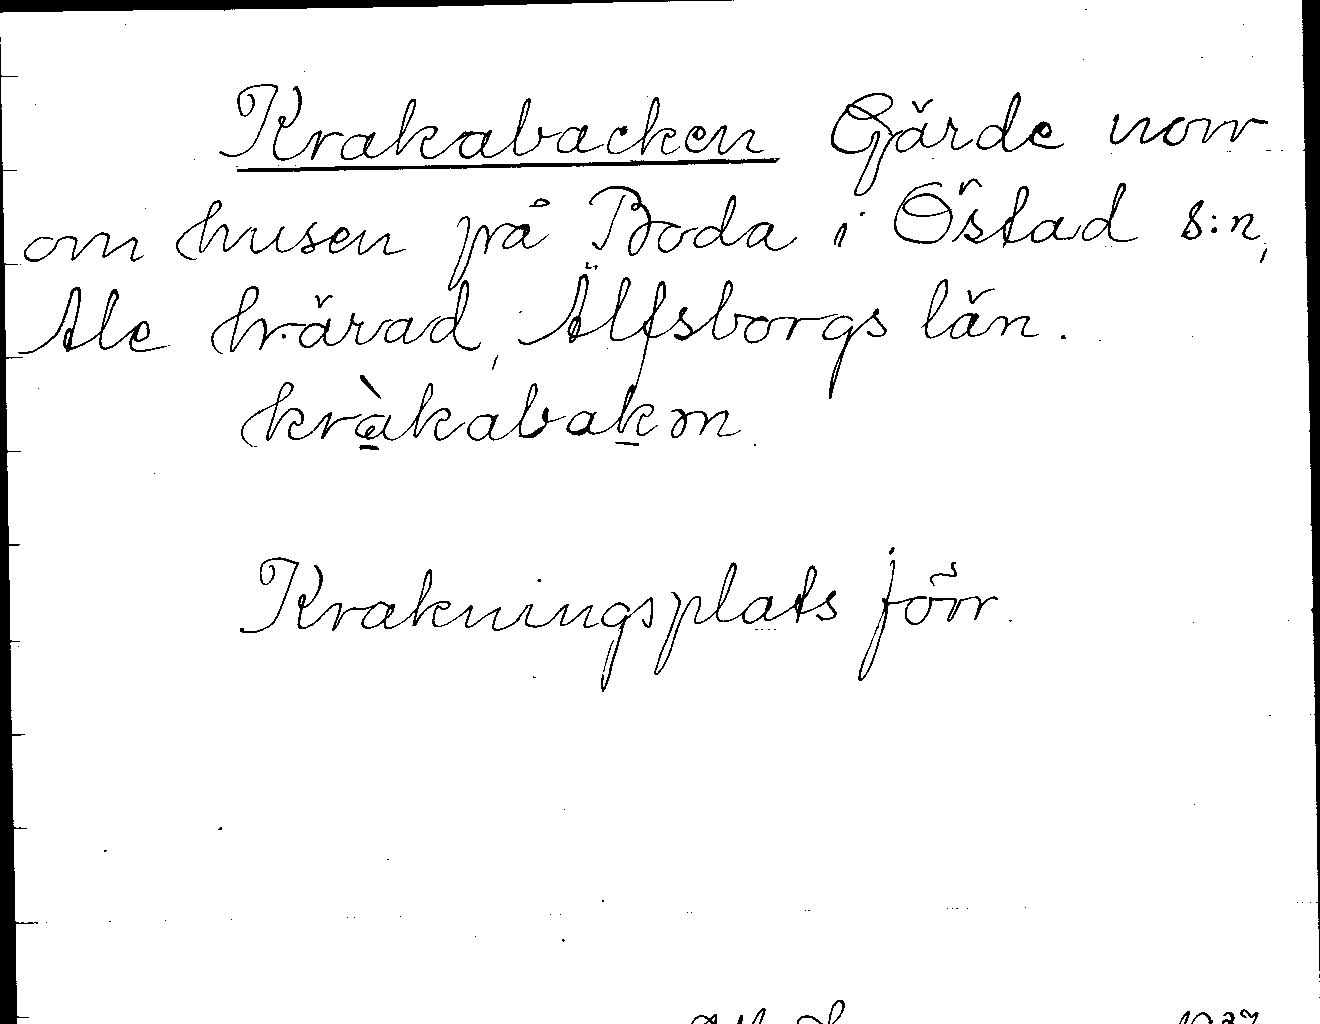 Krakabacken Gärde norr
om husen på Boda i Östad s:n,
Ale härad, Älfsborgs län.
kràkabakm
Krakningsplats förr.